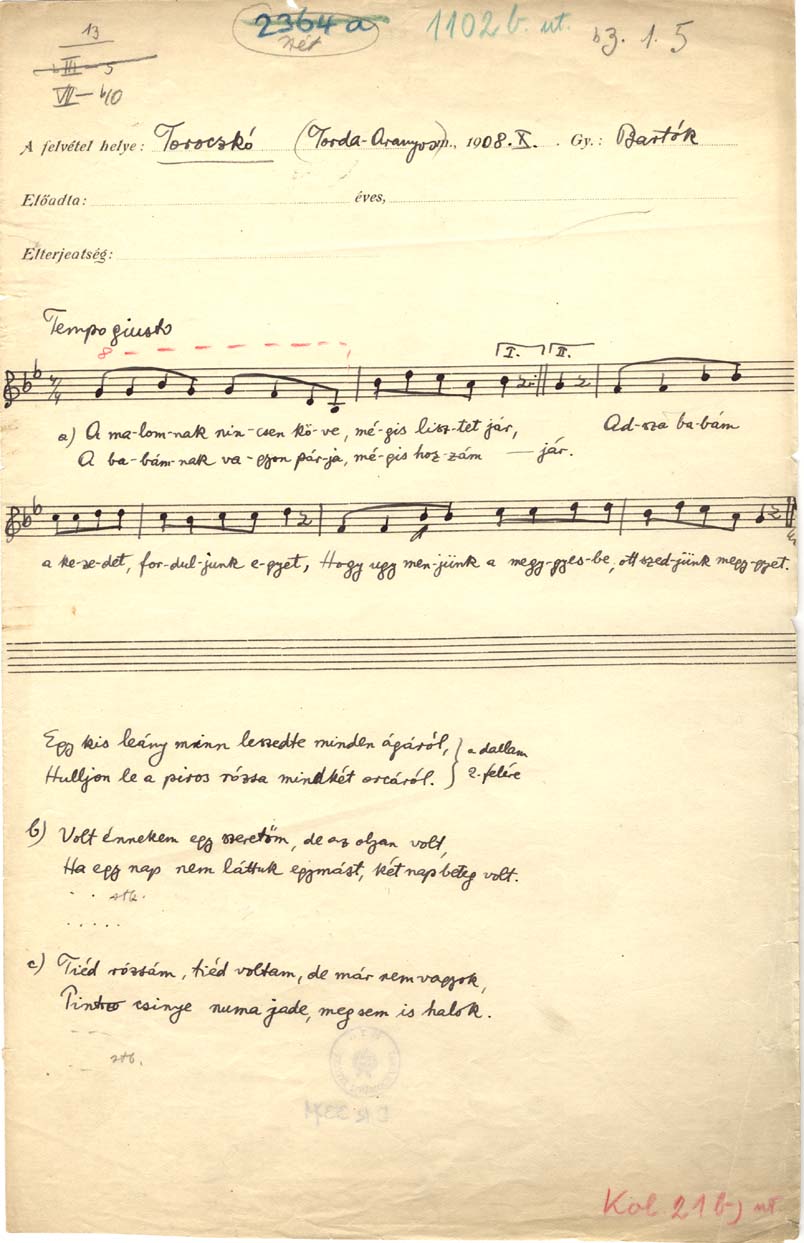 13
III — 5
VII — 10
2364 a
1102 b. ut.
b3. 1. 5
A felvétel helye: Toroczkó (Torda-Aranyos)m., 1908. X. Gy.: Bartók
Előadta: éves,
Elterjedtség:
Tempo giusto
8
I. II.
a) A ma-lom-nak nin-csen kö-ve, mé-gis lisz-tet jár, Ad-sza ba-bám
A ba-bám-nak va-gyon pár-ja, mé-gis hoz-zám — jár.
a ke-ze-det, for-dul-junk e-gyet, Hogy ugy men-jünk a megy-gyes-be, ott szed-jünk megy-gyet.
Egy kis leány mind leszedte minden ágáról, } a dallam
Hulljon le a piros rózsa mindkét orcáról. } 2. felére
b) Volt énnekem egy szeretőm, de az olyan volt,
Ha egy nap nem láttuk egymást, két nap beteg volt.
stb.
c) Tiéd rózsám, tiéd voltam, de már nem vagyok,
csinye numa jade, meg sem is halok.
stb.
Kol. 21 b) ut.